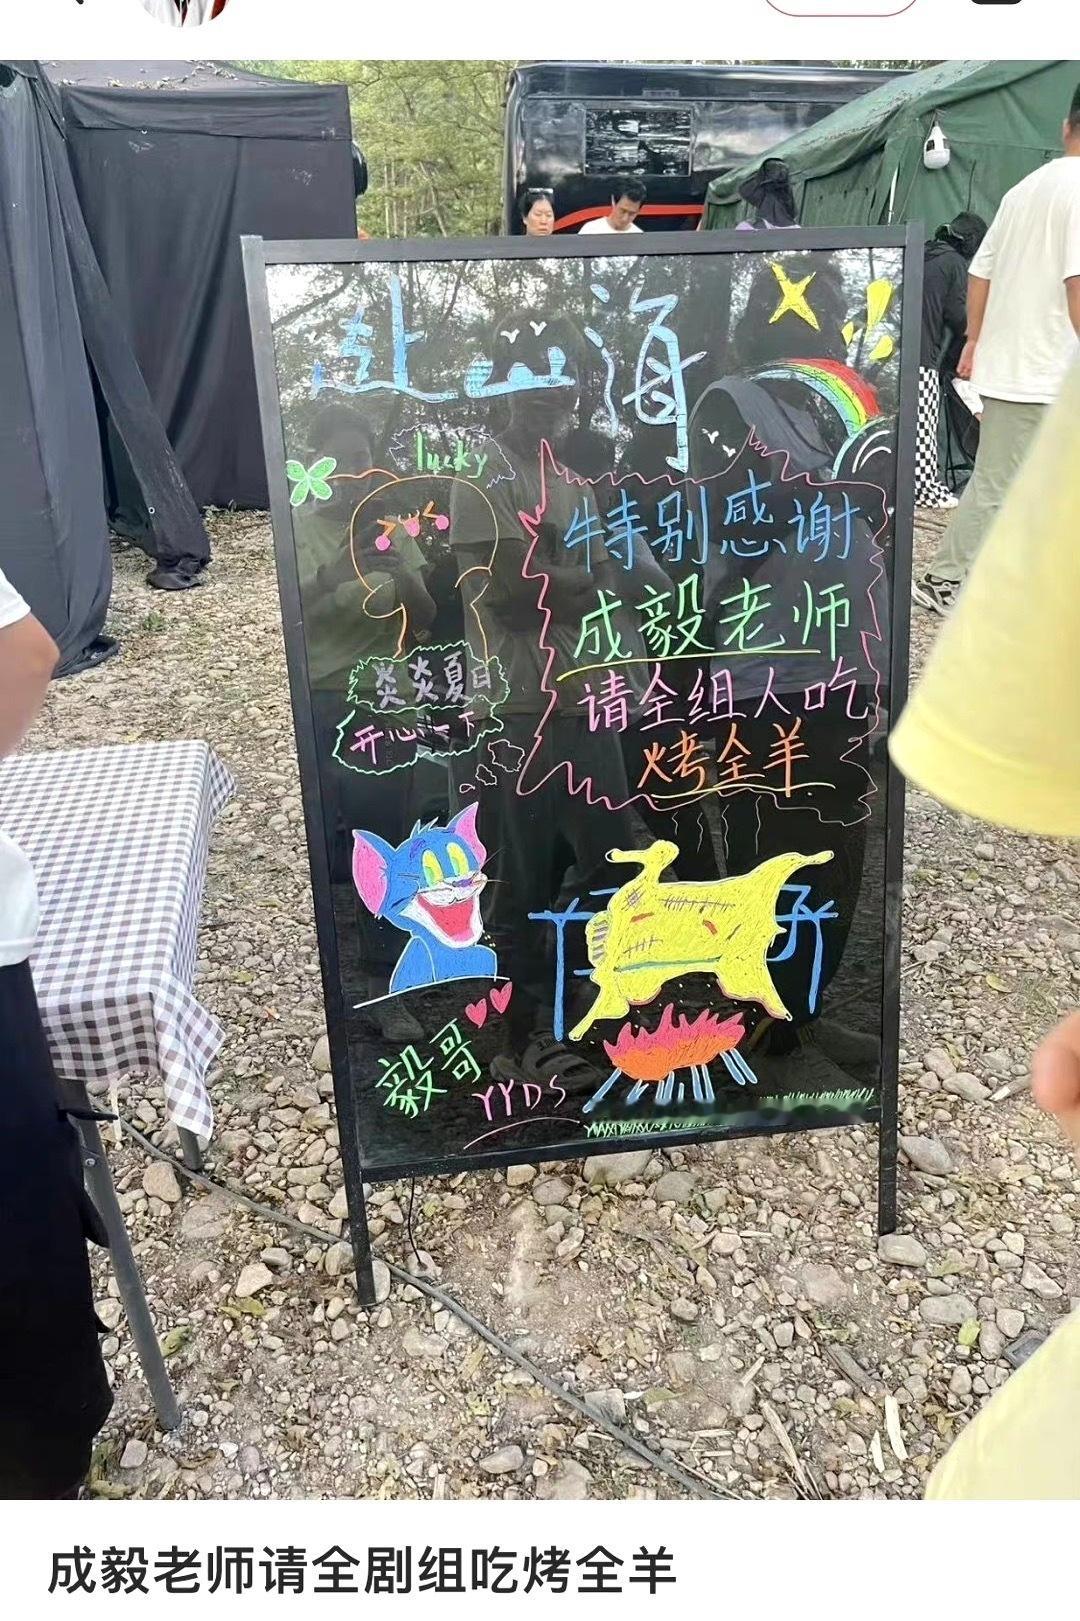 赴山海
lucky
特别感谢
成毅老师
请全组人吃
烤全羊
炎炎夏日
开心一下
毅哥
YYDS
成毅老师请全剧组吃烤全羊